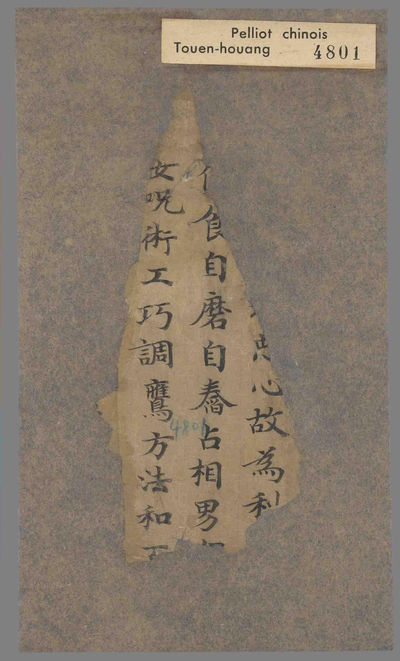 Pelliot chinois
Touen-houang 4801
心故為利
食自磨自舂占相男
女呪術工巧調鷹方法和
4801